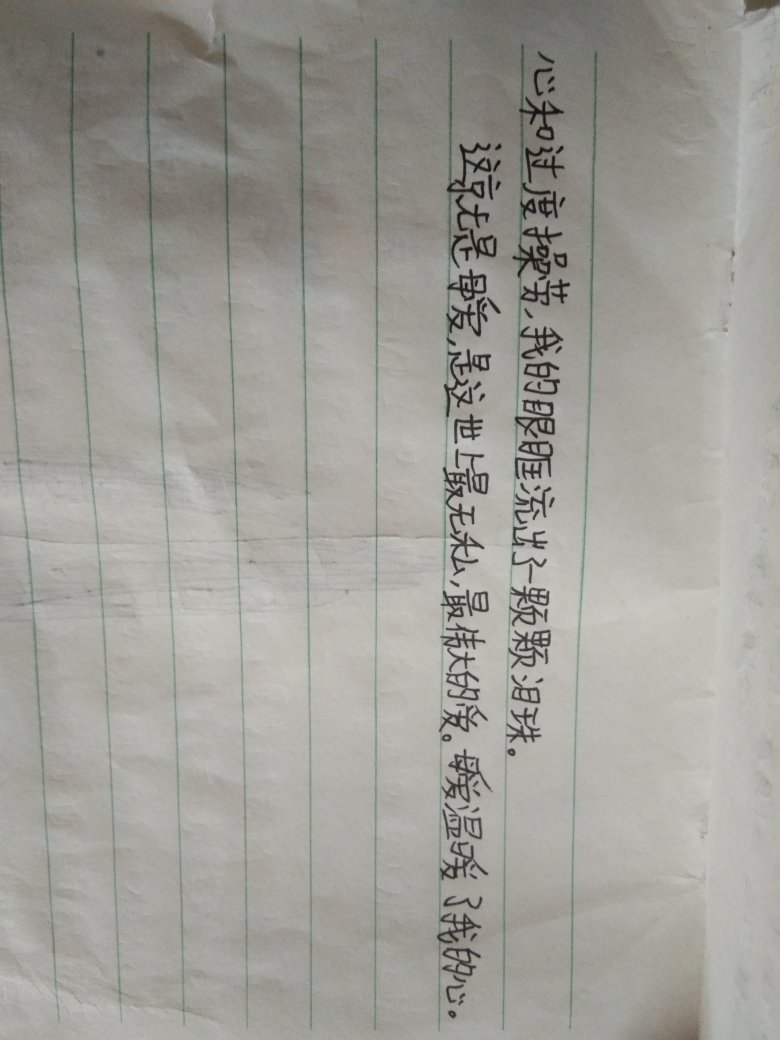 心和过度操劳,我的眼眶流出了一颗颗泪珠。
这就是母爱,是这世上最无私,最伟大的爱。母爱温暖了我的心。